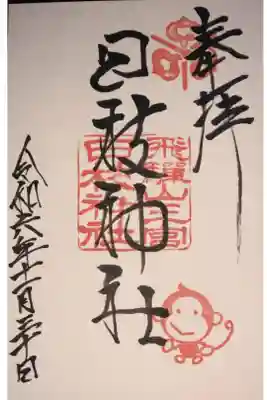 奉拝
日枝神社
飛騨山王宮
日枝神社
令和六年十一月三十日